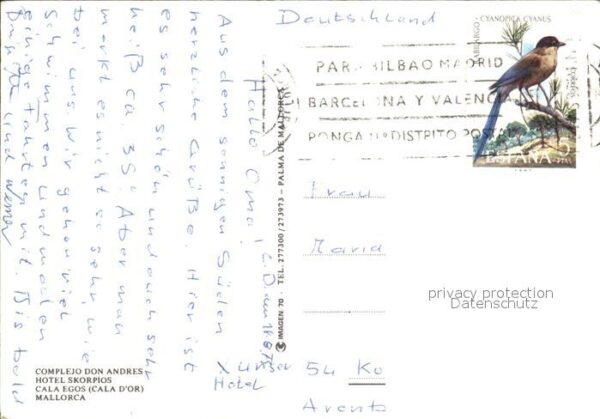 Deutschland
RABILARGO
CYANOPICA CYANUS
CORREOS
ESPAÑA
5
PTAS
PARA BILBAO MADRID
BARCELONA Y VALENCIA
PONGA Nº DISTRITO POSTAL
Hallo Oma!
Aus dem sonnigen Süden
herzliche Grüße. Hier ist
es sehr schön und auch sehr
heiß ca 35°. Aber man
merkt es nicht so sehr, wie
bei uns. Wir gehen viel
Schwimmen und machen
einige Fahrten mit. Bis bald
und
Unser
Hotel
IMAGEN 70 - TEL. 277300 / 273973 - PALMA DE MALLORCA
Frau
Maria
54 Ko
Arenb
privacy protection
Datenschutz
COMPLEJO DON ANDRES
HOTEL SKORPIOS
CALA EGOS (CALA D'OR)
MALLORCA